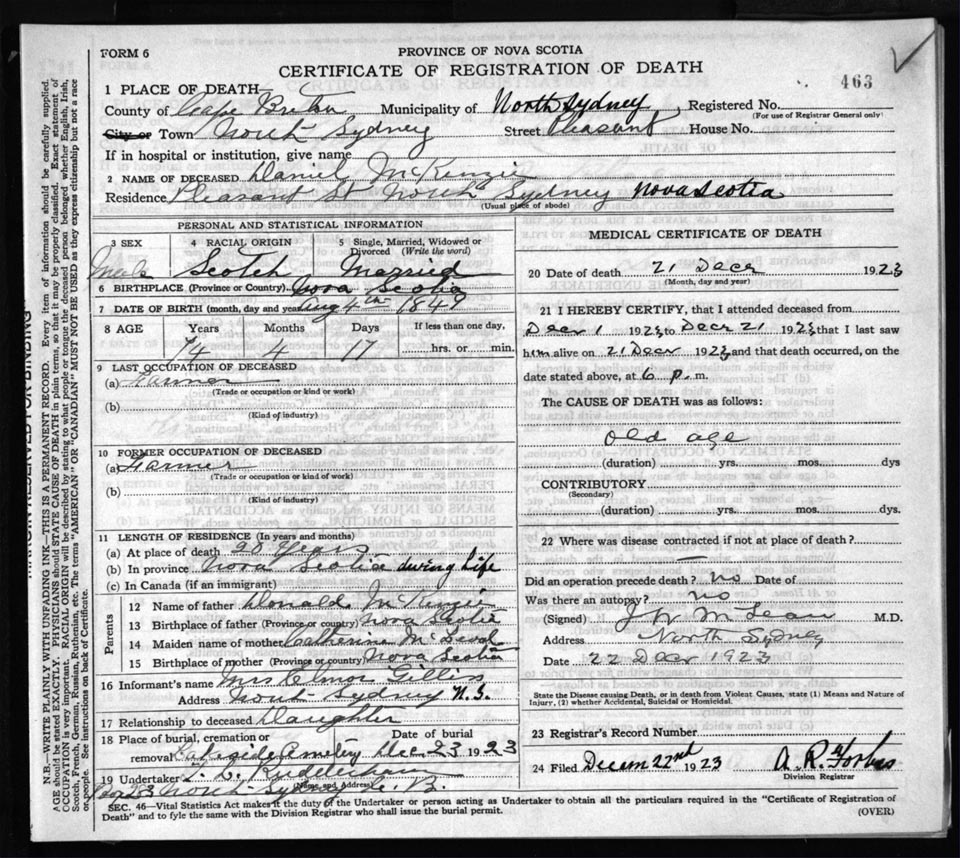 FORM 6
PROVINCE OF NOVA SCOTIA
CERTIFICATE OF REGISTRATION OF DEATH
463
1 PLACE OF DEATH—
County of Cape Breton Municipality of North Sydney Registered No.
(For use of Registrar General only)
City or Town North Sydney Street Pleasant House No.
If in hospital or institution, give name
2 NAME OF DECEASED Daniel McKenzie
Residence Pleasant St North Sydney Nova Scotia
(Usual place of abode)
PERSONAL AND STATISTICAL INFORMATION
3 SEX 4 RACIAL ORIGIN 5 Single, Married, Widowed or Divorced (Write the word)
Male Scotch Married
6 BIRTHPLACE (Province or Country) Nova Scotia
7 DATE OF BIRTH (month, day and year) Aug 4th 1849
8 AGE Years Months Days If less than one day,
74 4 17 hrs. or min.
9 LAST OCCUPATION OF DECEASED
(a) Farmer
(Trade or occupation or kind or work)
(b)
(Kind of industry)
10 FORMER OCCUPATION OF DECEASED
(a) Farmer
(Trade or occupation or kind of work)
(b)
(Kind of industry)
11 LENGTH OF RESIDENCE (In years and months)
(a) At place of death 20 Years
(b) In province Nova Scotia during Life
(c) In Canada (if an immigrant)
Parents
12 Name of father Donald McKenzie
13 Birthplace of father (Province or country) Nova Scotia
14 Maiden name of mother Catherine McLeod
15 Birthplace of mother (Province or country) Nova Scotia
16 Informant's name Mrs Elmor Gillis
Address North Sydney N.S.
17 Relationship to deceased Daughter
18 Place of burial, cremation or removal Date of burial
Lakeside Cemetery Dec 23 1923
19 Undertaker
(Name and Address)
North Sydney C. B.
MEDICAL CERTIFICATE OF DEATH
20 Date of death 21 Decr 1923
(Month, day and year)
21 I HEREBY CERTIFY, that I attended deceased from
Decr 1 1923 to Decr 21 1923 that I last saw
him alive on 21 Decr 1923 and that death occurred, on the
date stated above, at 6 p. m.
The CAUSE OF DEATH was as follows:
Old age
(duration) yrs. mos. dys
CONTRIBUTORY
(Secondary)
(duration) yrs. mos. dys.
22 Where was disease contracted if not at place of death?
Did an operation precede death? No Date of
Was there an autopsy? No
(Signed) J W McLean M.D.
Address North Sydney
Date 22 Decr 1923
State the Disease causing Death, or in death from Violent Causes, state (1) Means and Nature of
Injury, (2) whether Accidental, Suicidal or Homicidal.
23 Registrar's Record Number
24 Filed Decem 22nd 1923 A. R. Forbes
Division Registrar
SEC. 46—Vital Statistics Act makes it the duty of the Undertaker or person acting as Undertaker to obtain all the particulars required in the "Certificate of Registration of
Death" and to fyle the same with the Division Registrar who shall issue the burial permit.
(OVER)
MARGIN RESERVED FOR BINDING
N.B.—WRITE PLAINLY WITH UNFADING INK—THIS IS A PERMANENT RECORD. Every item of information should be carefully supplied.
AGE should be stated EXACTLY. PHYSICIANS should STATE CAUSE OF DEATH in plain terms, so that it may be properly classified. Exact statement of
OCCUPATION is very important. RACIAL ORIGIN will be described by stating to what people or tongue the deceased person belonged whether English, Irish,
Scotch, French, German, Russian, Ruthenian, etc. The terms "AMERICAN" OR "CANADIAN" MUST NOT BE USED as they express citizenship but not a race
or people. See instructions on back of Certificate.